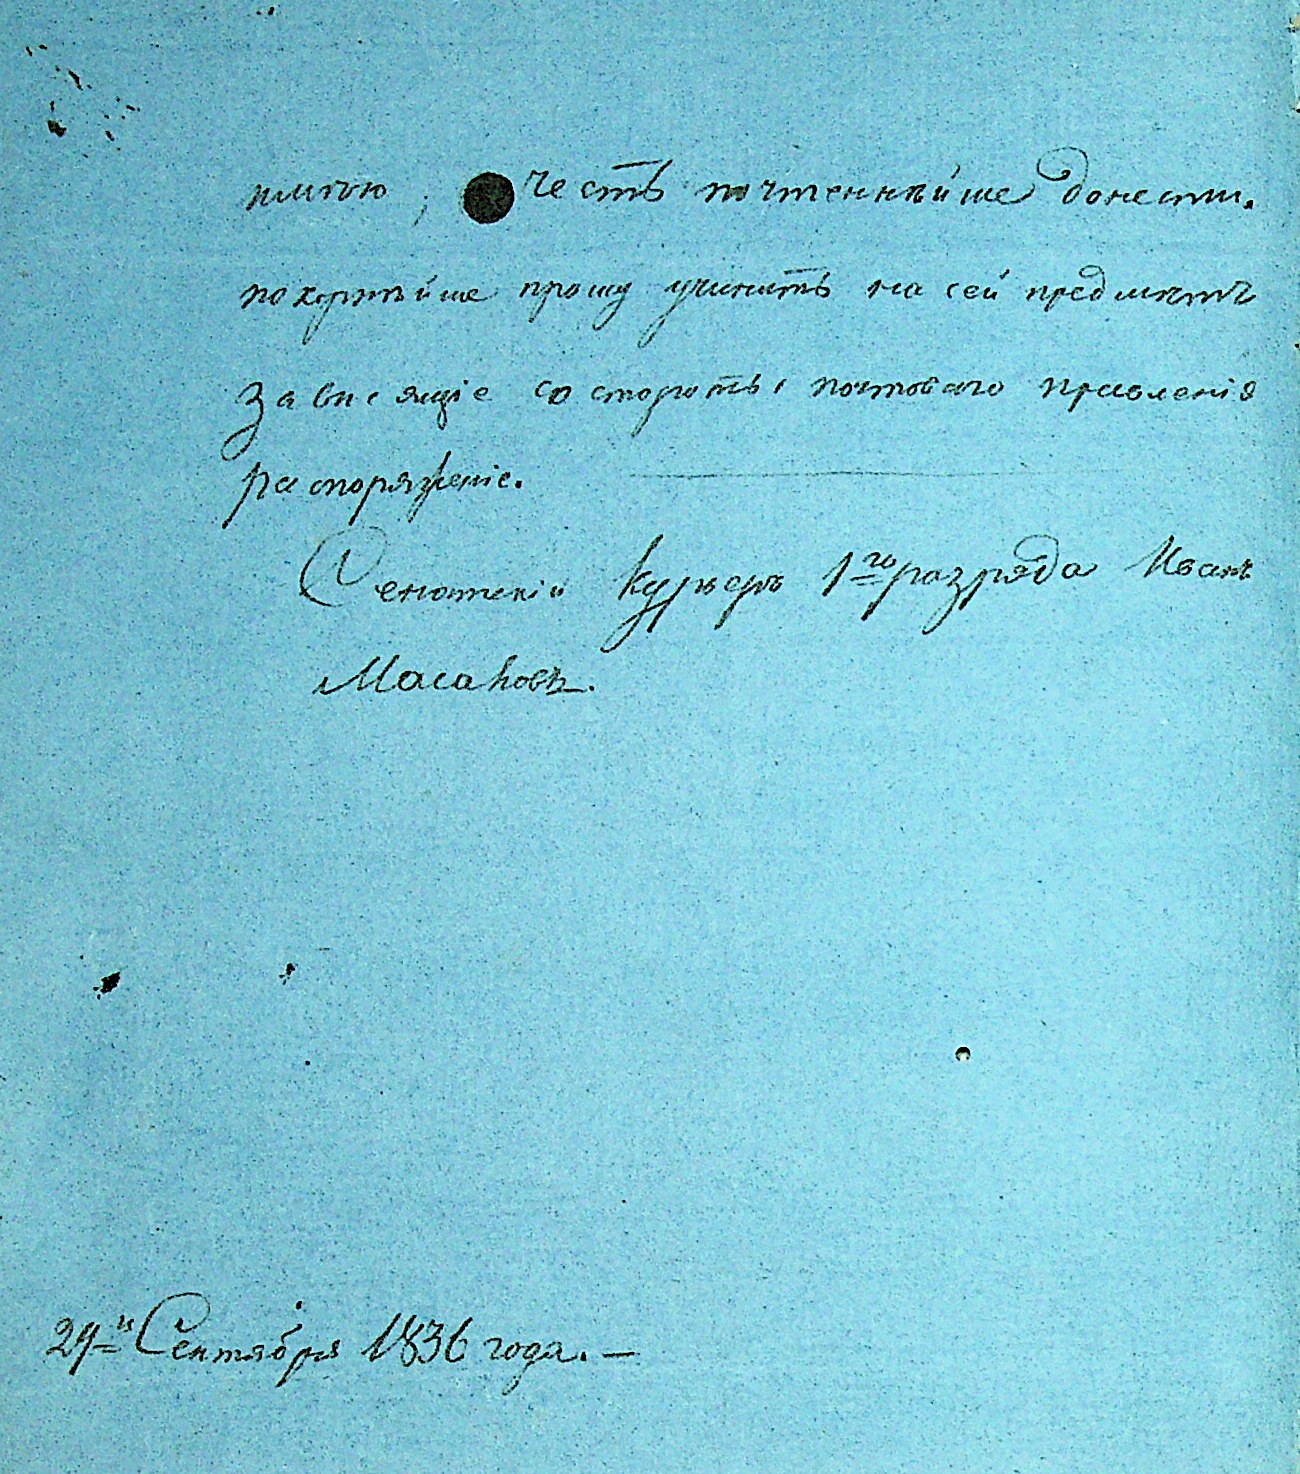 имѣю, честь почтеннѣйше донести.
покорнѣйше прошу учинить на сей предмѣтъ
зависящіе со стороны почтоваго правленія
распоряженіе.
Сенатскій курьеръ 1го разряда Иванъ
Масаковъ.
29 Сентября 1836 года. —